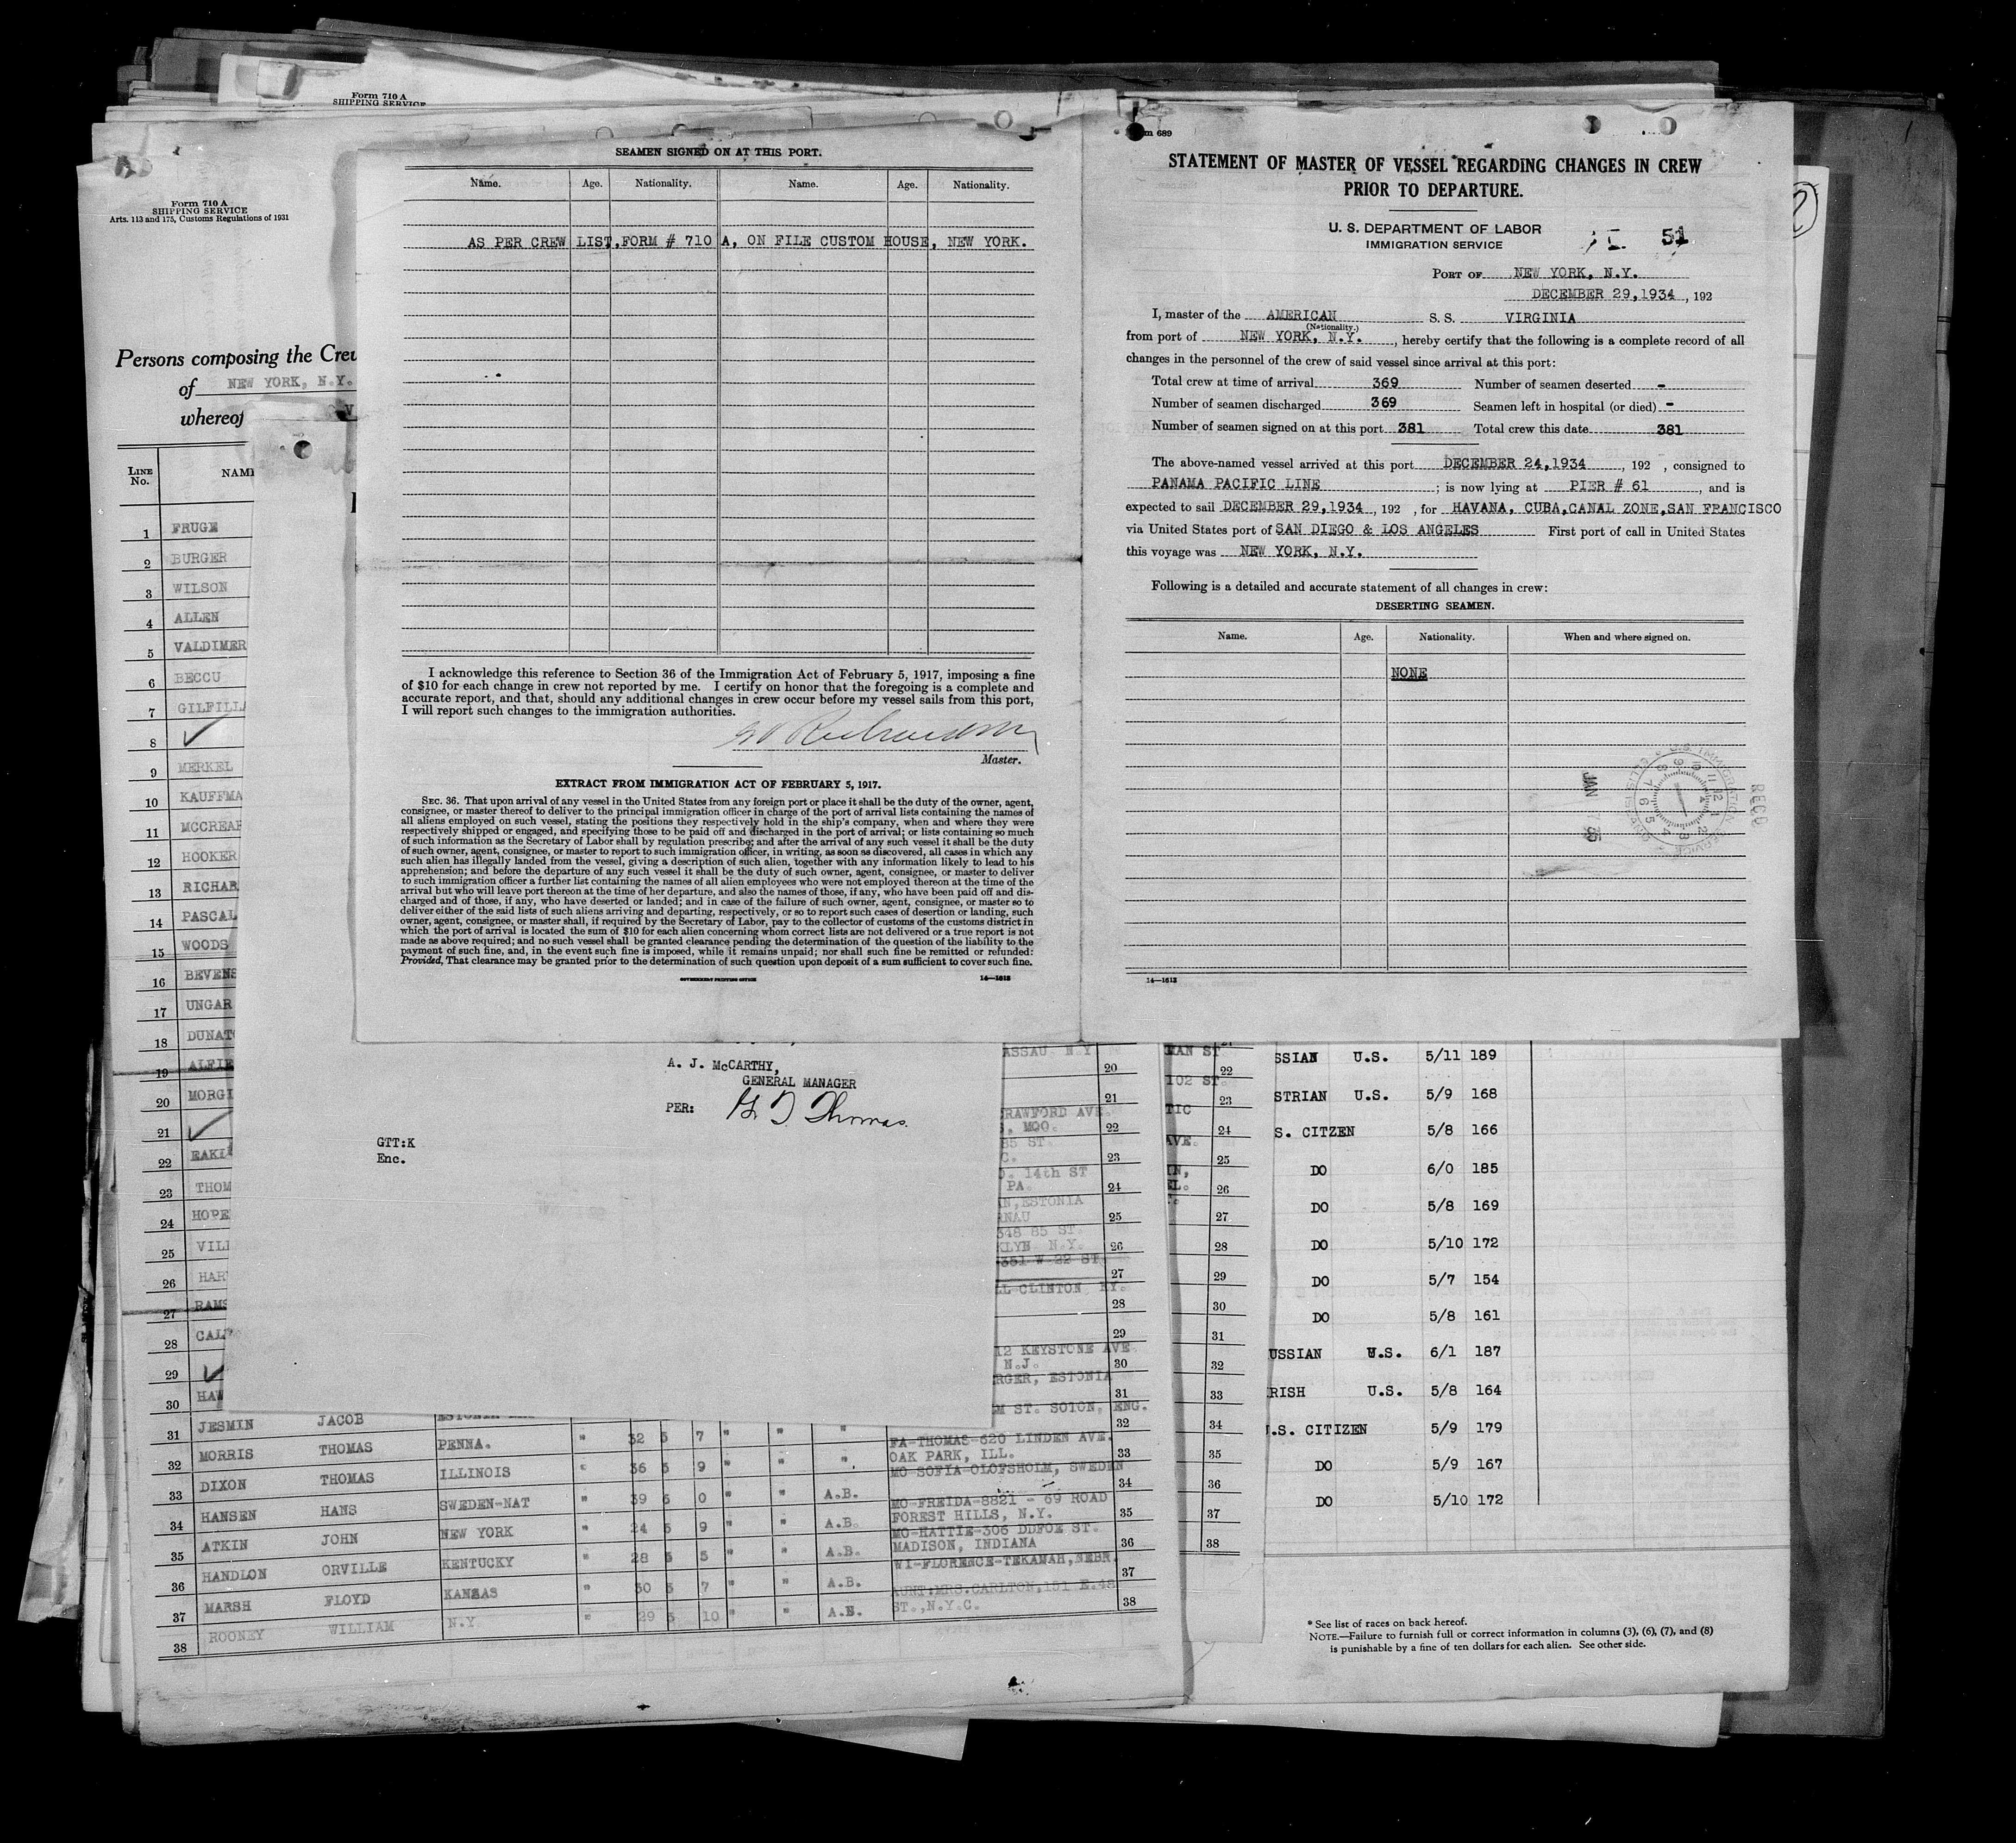 Form 710 A
SHIPPING SERVICE
Form 710 A
SHIPPING SERVICE
Arts. 113 and 175, Customs Regulations of 1931
Persons composing the Crew
of NEW YORK, N.Y.
whereof
LINE No. NAME
1 FRUGE
2 BURGER
3 WILSON
4 ALLEN
5 VALDIMER
6 BECCU
7 GILFILLA
8
9 MERKEL
10 KAUFFMA
11 MCCREAR
12 HOOKER
13 RICHAR
14 PASCAL
15 WOODS
16 BEVENS
17 UNGAR
18 DUNAT
19 ALFIE
20 MORGI
21
22 EAKI
23 THOM
24 HOPE
25 VILL
26 HAR
27 RAMS
28 CAL
29
30 HAW
31 JESMIN JACOB
32 MORRIS THOMAS PENNA. " 32 5 7 " " " FA-THOMAS-620 LINDEN AVE. OAK PARK, ILL.
33 DIXON THOMAS ILLINOIS " 36 5 9 " " " MO-SOFIA-OLOFSHOLM, SWEDEN
34 HANSEN HANS SWEDEN-NAT " 39 6 0 " " A.B. MO-FREIDA-8821 - 69 ROAD FOREST HILLS, N.Y.
35 ATKIN JOHN NEW YORK " 24 5 9 " " A.B. MO-HATTIE-306 DDFOE ST. MADISON, INDIANA
36 HANDLON ORVILLE KENTUCKY " 28 5 5 " " A.B. WI-FLORENCE-TEKAMAH,NEBR.
37 MARSH FLOYD KANSAS " 30 5 7 " " A.B. AUNT:MRS.CARLTON,151 E.48 ST.,N.Y.C.
38 ROONEY WILLIAM N.Y " 29 5 10 " " A.B.
SEAMEN SIGNED ON AT THIS PORT.
Name. Age. Nationality. Name. Age. Nationality.
AS PER CREW LIST,FORM # 710 A, ON FILE CUSTOM HOUSE, NEW YORK.
I acknowledge this reference to Section 36 of the Immigration Act of February 5, 1917, imposing a fine
of $10 for each change in crew not reported by me. I certify on honor that the foregoing is a complete and
accurate report, and that, should any additional changes in crew occur before my vessel sails from this port,
I will report such changes to the immigration authorities.
Master.
EXTRACT FROM IMMIGRATION ACT OF FEBRUARY 5, 1917.
SEC. 36. That upon arrival of any vessel in the United States from any foreign port or place it shall be the duty of the owner, agent,
consignee, or master thereof to deliver to the principal immigration officer in charge of the port of arrival lists containing the names of
all aliens employed on such vessel, stating the positions they respectively hold in the ship's company, when and where they were
respectively shipped or engaged, and specifying those to be paid off and discharged in the port of arrival; or lists containing so much
of such information as the Secretary of Labor shall by regulation prescribe; and after the arrival of any such vessel it shall be the duty
of such owner, agent, consignee, or master to report to such immigration officer, in writing, as soon as discovered, all cases in which any
such alien has illegally landed from the vessel, giving a description of such alien, together with any information likely to lead to his
apprehension; and before the departure of any such vessel it shall be the duty of such owner, agent, consignee, or master to deliver
to such immigration officer a further list containing the names of all alien employees who were not employed thereon at the time of the
arrival but who will leave port thereon at the time of her departure, and also the names of those, if any, who have been paid off and dis-
charged and of those, if any, who have deserted or landed; and in case of the failure of such owner, agent, consignee, or master so to
deliver either of the said lists of such aliens arriving and departing, respectively, or so to report such cases of desertion or landing, such
owner, agent, consignee, or master shall, if required by the Secretary of Labor, pay to the collector of customs of the customs district in
which the port of arrival is located the sum of $10 for each alien concerning whom correct lists are not delivered or a true report is not
made as above required; and no such vessel shall be granted clearance pending the determination of the question of the liability to the
payment of such fine, and, in the event such fine is imposed, while it remains unpaid; nor shall such fine be remitted or refunded:
Provided, That clearance may be granted prior to the determination of such question upon deposit of a sum sufficient to cover such fine.
GOVERNMENT PRINTING OFFICE 14—1613
A. J. McCARTHY,
GENERAL MANAGER
PER: G T Thomas
GTT:K
Enc.
m 689
STATEMENT OF MASTER OF VESSEL REGARDING CHANGES IN CREW
PRIOR TO DEPARTURE.
U. S. DEPARTMENT OF LABOR
IMMIGRATION SERVICE
51
PORT OF NEW YORK, N.Y.
DECEMBER 29,1934, 192
I, master of the AMERICAN S. S. VIRGINIA
(Nationality.)
from port of NEW YORK, N.Y., hereby certify that the following is a complete record of all
changes in the personnel of the crew of said vessel since arrival at this port:
Total crew at time of arrival 369 Number of seamen deserted -
Number of seamen discharged 369 Seamen left in hospital (or died) -
Number of seamen signed on at this port 381 Total crew this date 381
The above-named vessel arrived at this port DECEMBER 24,1934, 192 , consigned to
PANAMA PACIFIC LINE ; is now lying at PIER # 61, and is
expected to sail DECEMBER 29,1934, 192 , for HAVANA, CUBA,CANAL ZONE,SAN FRANCISCO
via United States port of SAN DIEGO & LOS ANGELES First port of call in United States
this voyage was NEW YORK, N.Y.
Following is a detailed and accurate statement of all changes in crew:
DESERTING SEAMEN.
Name. Age. Nationality. When and where signed on.
NONE
JAN 35
RECD
14—1613
ASSAU N.Y 20
21
RAWFORD AVE.
MOO. 22
85 ST.
C. 23
14th ST
PA. 24
N,ESTONIA
NAU 25
348 85 ST.
KLYN N.Y. 26
351 W 22 ST
27
LL CLINTON KY.
28
29
12 KEYSTONE AVE
N.J. 30
RGER, ESTONIA
31
M ST. SOTON, ENG.
32
33
34
35
36
37
38
MAN ST
22
102 ST.
23
TIC
24
AVE.
25
IN,
EL. 26
27
28
29
30
31
32
33
34
35
36
37
38
SSIAN U.S. 5/11 189
STRIAN U.S. 5/9 168
S. CITZEN 5/8 166
DO 6/0 185
DO 5/8 169
DO 5/10 172
DO 5/7 154
DO 5/8 161
USSIAN U.S. 6/1 187
RISH U.S. 5/8 164
U.S. CITIZEN 5/9 179
DO 5/9 167
DO 5/10 172
* See list of races on back hereof.
NOTE.—Failure to furnish full or correct information in columns (3), (6), (7), and (8)
is punishable by a fine of ten dollars for each alien. See other side.